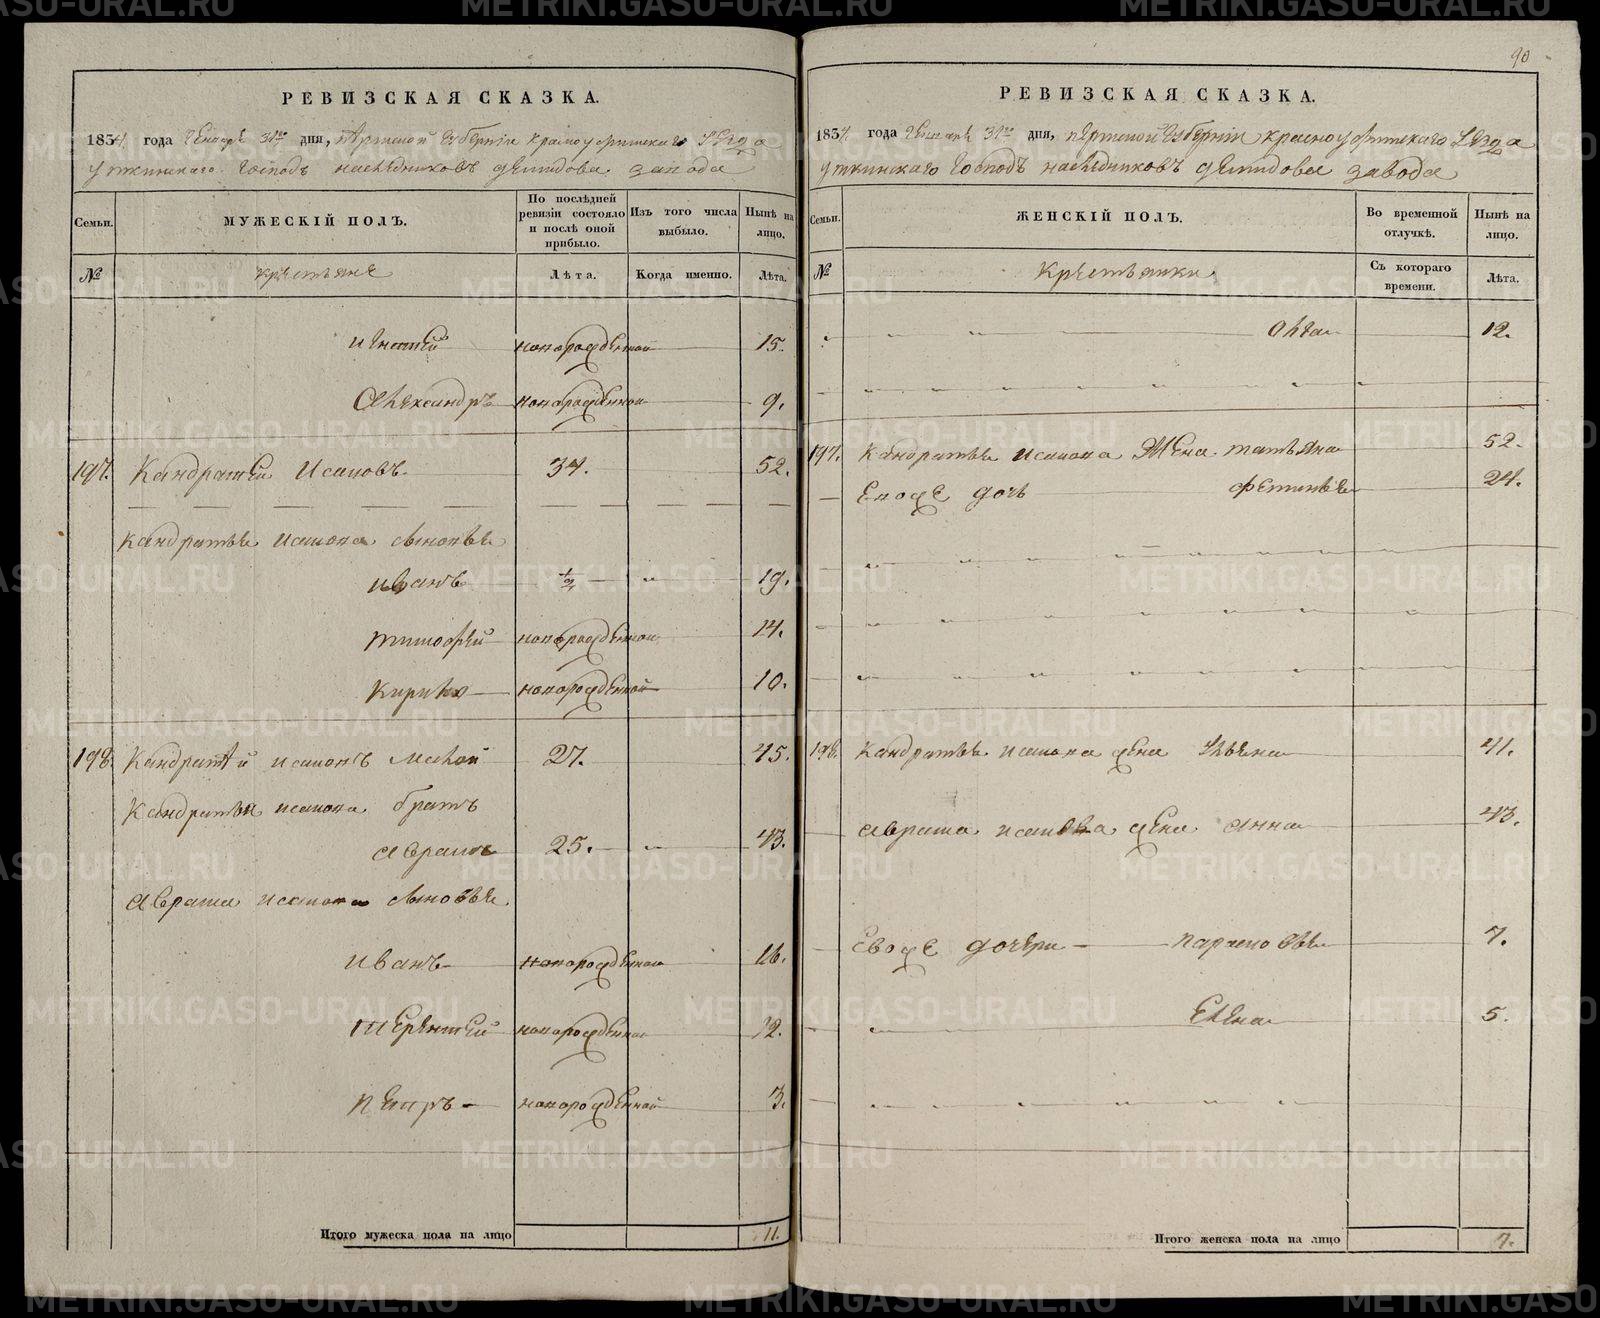 90
РЕВИЗСКАЯ СКАЗКА.
1834. года Генваря 31го дня, Пермской Губерніи Красноуфимскаго Уезда
Уткинскаго Господъ наследниковъ Демидова завода
Семьи.
МУЖЕСКІЙ ПОЛЪ.
По послѣдней ревизіи состояло и послѣ оной прибыло.
Изъ того числа выбыло.
Нынѣ на лицо.
№
крестьяне
Лѣта.
Когда именно.
Лѣта.
новорожденной 15.
Александръ новорожденной 9.
197. Кандратей Исаковъ 34. 52.
Кандратья Исакова сыновья
Иванъ 1/2 " 19.
Тимофей новорожденной 14.
Кирило новорожденной 10.
198. Кандратей Исаковъ малой 27. 45.
Кандратья Исакова братъ
Аврамъ 25. " 43.
Аврама Исакова сыновья
Иванъ новорожденной 16.
Терентей новорожденной 12.
Петръ новорожденной 3.
Итого мужеска пола на лицо 11.
РЕВИЗСКАЯ СКАЗКА.
1834. года Генваря 31го дня, Пермской Губерніи Красноуфимскаго Уезда
Уткинскаго Господъ наследниковъ Демидова завода
Семьи.
ЖЕНСКІЙ ПОЛЪ.
Во временной отлучкѣ.
Нынѣ на лицо.
№
Крестьянки
Съ котораго времени.
Лѣта.
Олга 12.
197. Кандратья Исакова жена Татьяна 52.
Евоже дочь Фетинья 24.
198. Кандратья Исакова жена Ульяна 41.
Аврама Исакова жена Анна 43.
Евоже дочери Парасковья 7.
Елена 5.
Итого женска пола на лицо 7.
METRIKI.GASO-URAL.RU